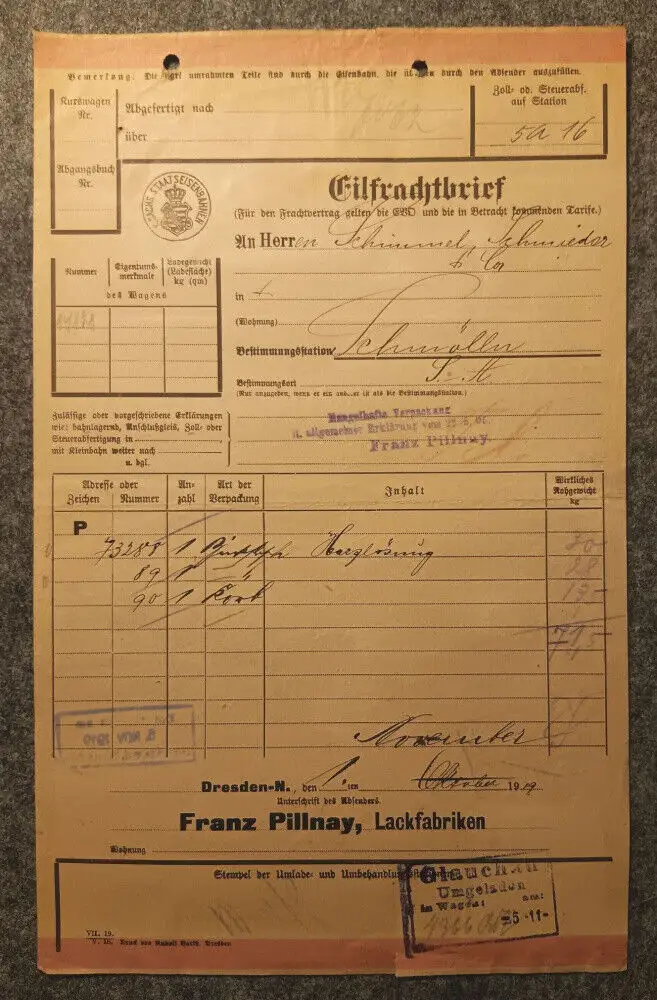 Bemerkung. Die stark umrahmten Teile sind durch die Eisenbahn, die übrigen durch den Absender auszufüllen.
Kurswagen
Nr.
Abgefertigt nach
über
Zoll- od. Steuerabf.
auf Station
5a 16
Abgangsbuch
Nr.
SÄCHS. STAATSEISENBAHNEN
Eilfrachtbrief
(Für den Frachtvertrag gelten die EVO und die in Betracht kommenden Tarife.)
An Herren Schimmel, Schmieder
& Co
in
(Wohnung)
Bestimmungsstation Schmölln
S.-A.
Bestimmungsort
(Nur anzugeben, wenn er ein anderer ist als die Bestimmungsstation.)
Nummer
Eigentums-
merkmale
Ladegewicht
(Ladefläche)
kg (qm)
des Wagens
Zulässige oder vorgeschriebene Erklärungen
wie: bahnlagernd, Anschlußgleis, Zoll- oder
Steuerabfertigung in
mit Kleinbahn weiter nach
u. dgl.
Mangelhafte Verpackung
lt. allgemeiner Erklärung vom
Franz Pillnay.
Adresse oder
Zeichen Nummer
An-
zahl
Art der
Verpackung
Inhalt
Wirkliches
Rohgewicht
kg
P
73288 1 Harzlösung 30
89 1 " 28
90 1 Korb
November
Dresden-N., den 1. ten Oktober 1919
Unterschrift des Absenders.
Franz Pillnay, Lackfabriken
Wohnung
Stempel der Umlade- und Umbehandlungsstationen
Glauchau
Umgeladen
im Wagen: am:
-5-11-
VII. 19.
V. 18. Druck von Rudolf Barth, Dresden